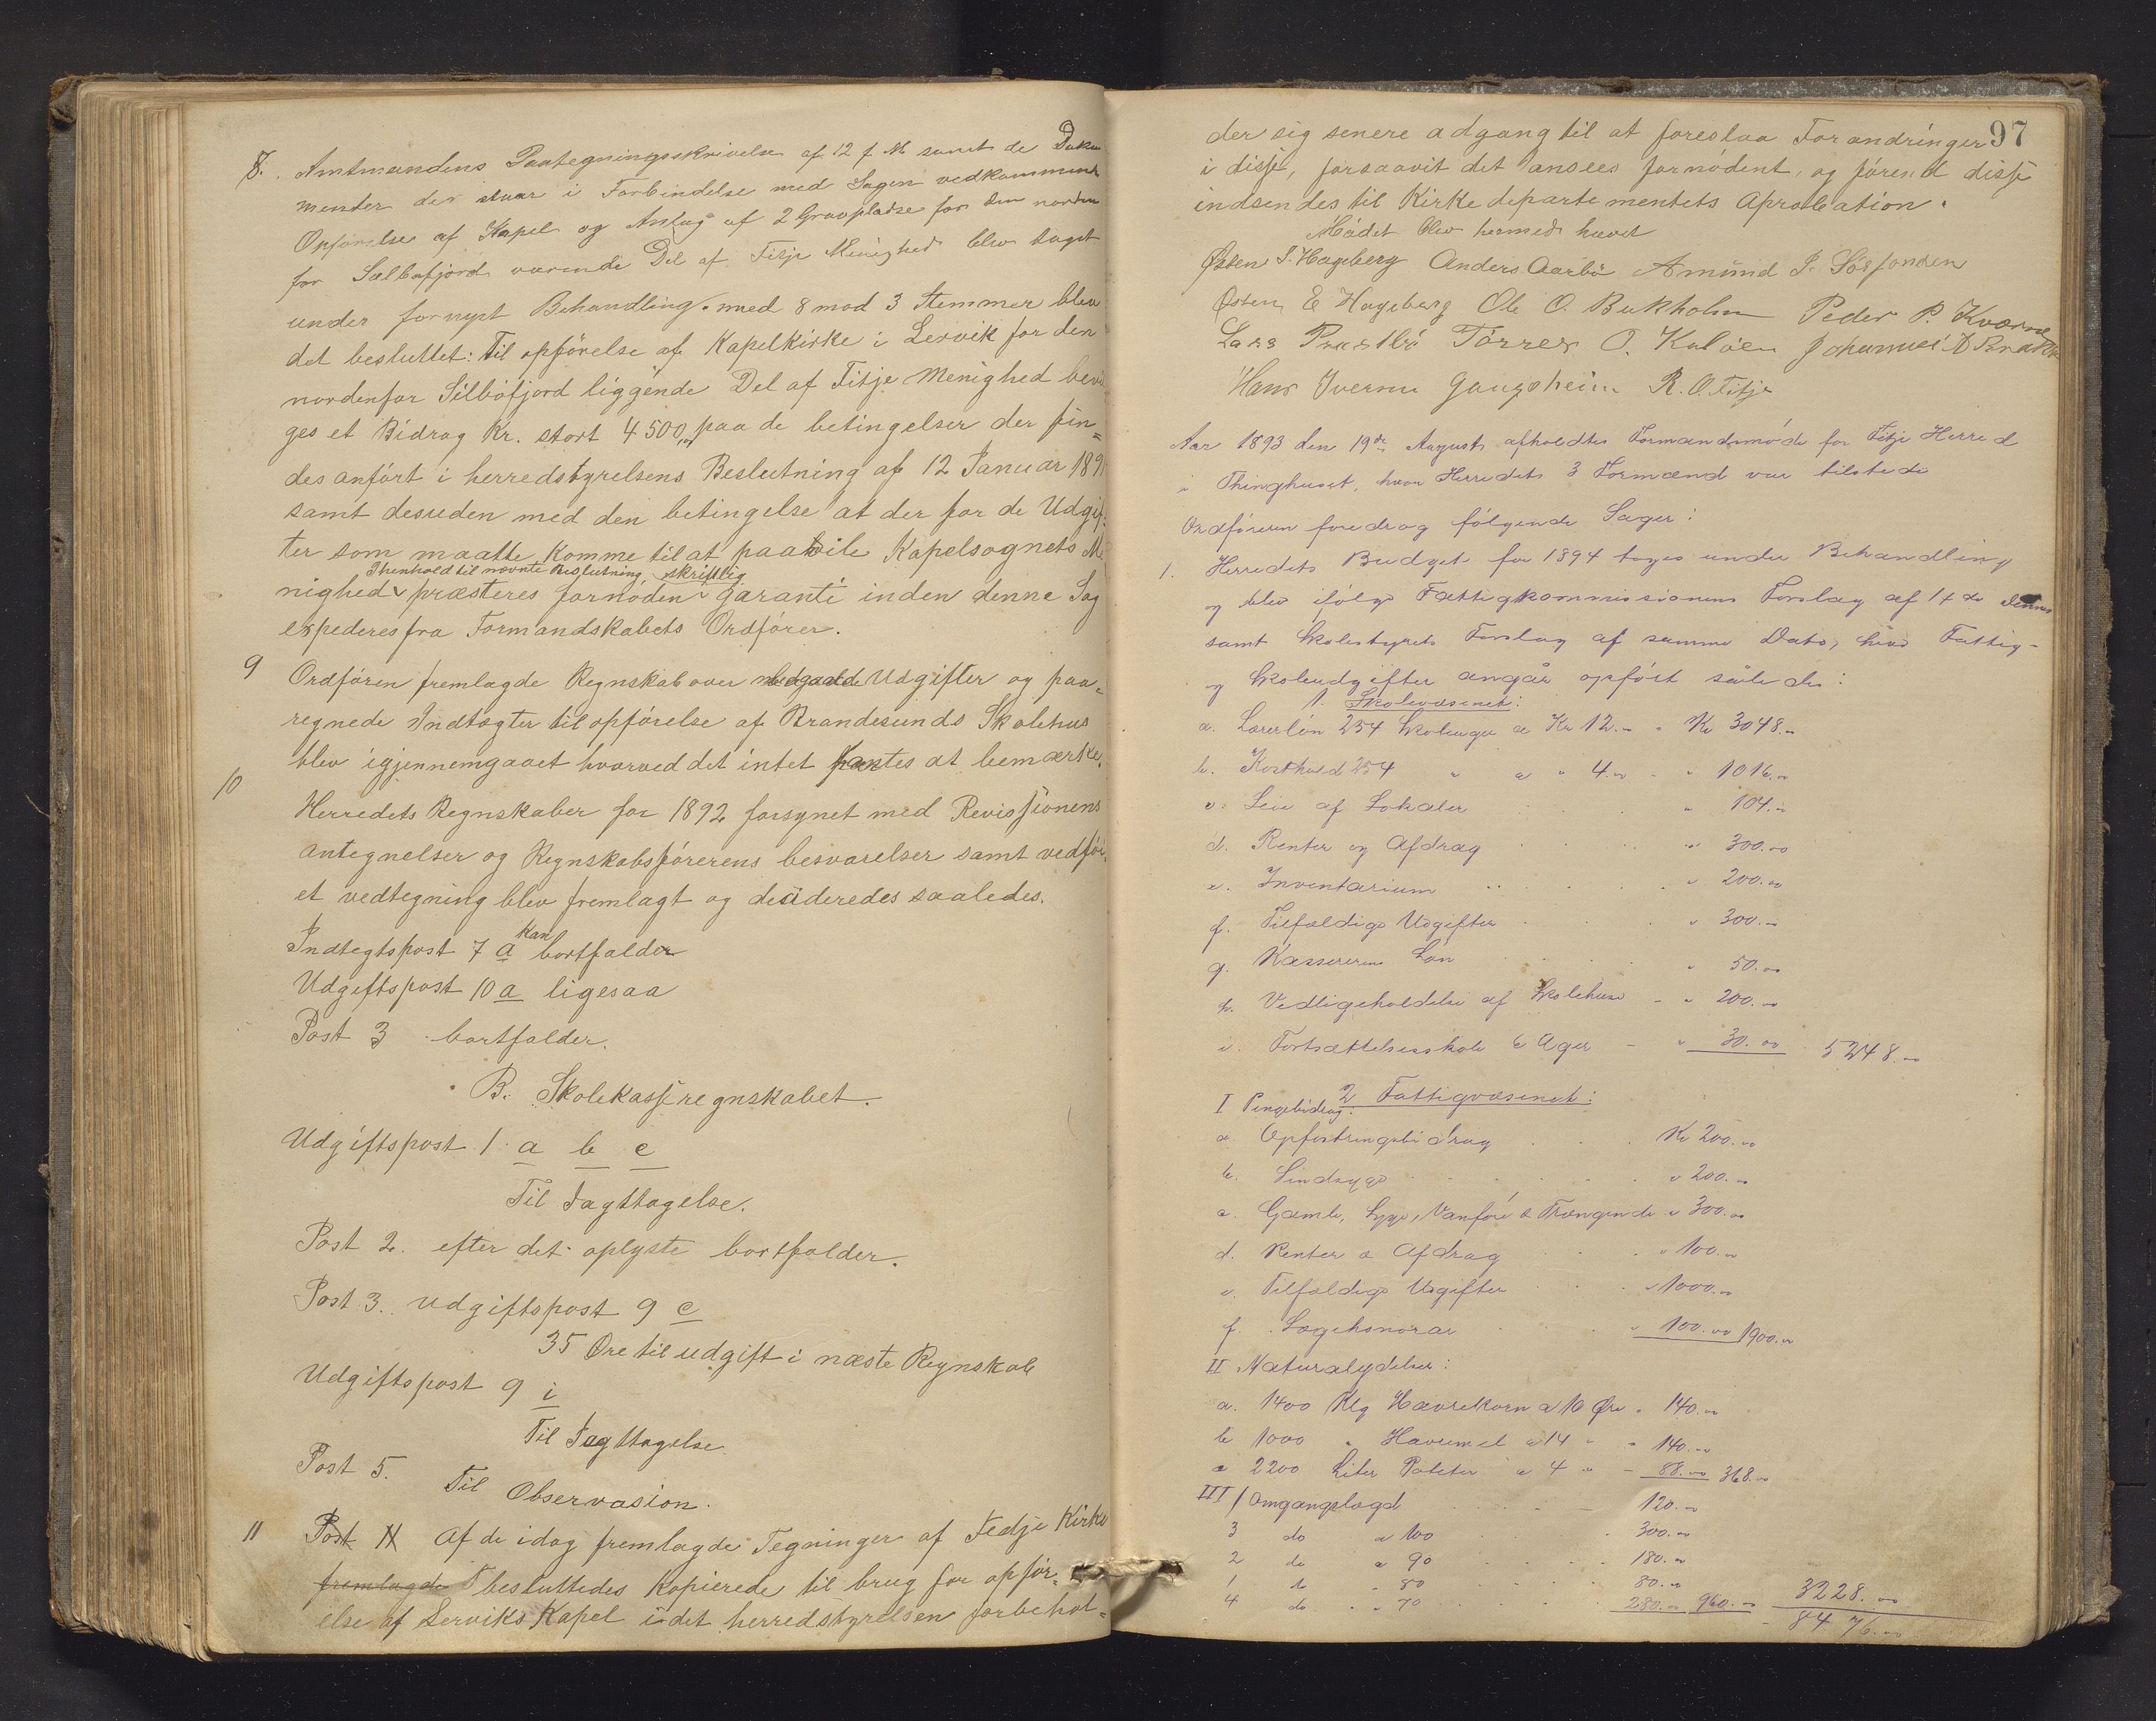 8. Amtmandens Paategningsskrivelse af 12 f M samt de Doku
menter der staar i Forbindelse med Sagen vedkommende
Opførelse af Kapel og Anlæg af 2 Gravpladse for den norden
for Selbøfjord værende Del af Fitje Menighed blev taget
under fornyet Behandling. med 8 mod 3 Stemmer blev
det besluttet: til opførelse af Kapelkirke i Lervik for den
nordenfor Silbøfjord liggende Del af Fitje Menighed bevil
ges et Bidrag Kr. stort 4500,00 paa de betingelser der fin=
des anført i herredstyrelsens Beslutning af 12 Januar 1891
samt desuden med den betingelse at der for de Udgif=
ter som maatte komme til at paahvile Kapelsognets Me
Ihenhold til nævnte Beslutning, skriftlig
nighed præsteres fornøden garanti inden denne Sag
expederes fra Formandskabets Ordfører.
9 Ordføren fremlagde Regnskab over medgaaede Udgifter og paa=
regnede Indtægter til opførelse af Brandesunds Skolehus
blev igjennemgaaet hvorved det intet fantes at bemærke.
10
Herredets Regnskaber for 1892 forsynet med Revissionens
antegnelser og Regnskabsførerens besvarelser samt vedføi
et vedtegning blev fremlagt og desideredes saaledes.
Indtegtspost 7 a kan bortfalder
Udgiftspost 10 a ligesaa
Post 3 bortfalder.
B. Skolekasseregnskabet.
Udgiftspost 1 a b c
Til Iagttagelse.
Post 2. efter det oplyste bortfalder.
Post 3. udgiftspost 9 c
35 Øre til udgift i næste Regnskab
Udgiftspost 9 i
Til Iagttagelse.
Post 5.
Til Observasion.
11 Post 11 Af de idag fremlagde Tegninger af Fedje Kirke
fremlagde besluttedes kopierede til brug for opfør=
else af Lerviks Kapel idet herredstyrelsen forbehol=
97
der sig senere adgang til at foreslaa Forandringer
i disse, forsaavit det ansees fornødent, og førend disse
indsendes til Kirkedepartementets Aprobation.
Mødet blev hermed hævet
Østen S. Hageberg Anders Aarbø Amund P. Sørfonden
Østen E Hageberg Ole O. Bukholm Peder P. Kværne
Lars Præstbø Tørres O. Kaløen Johannes
Hans Iversen Gaugsheim R. O. Fitje
Aar 1893 den 19de August afholdtes Formandsmøde for Fitje Herred
i Thinghuset, hvor Herredets 3 Formænd var tilstede
Ordføreren foredrog følgende Sager:
1. Herredets Budget for 1894 toges under Behandling
og blev ifølge Fattigkommissionens Forslag af 14 de dennes
samt Skolestyrets Forslag af samme Dato, hvad Fattig-
og Skoleudgifter angår opført således:
1. Skolevæsenet:
a. Lærerløn 254 Skoleuger a Kr 12.00 Kr 3048.00
b. Kosthold 254 " a " 4.00 " 1016.00
c. Leie af Lokaler " 104.00
d. Renter og Afdrag " 300.00
e. Inventarium " 200.00
f. Tilfældige Udgifter " 300.00
g. Kassererens Løn " 50.00
h. Vedligeholdelse af Skolehuse " 200.00
i. Fortsættelsesskole 6 Uger " 30.00 5248.00
2 Fattigvæsenet:
I Pengebidrag:
a. Opfostringsbidrag Kr 200.00
b. Sindsyge " 200.00
c. Gamle, Syge, Vanføre & Trængende " 300.00
d. Renter & Afdrag " 100.00
e. Tilfældige Udgifter " 1000.00
f. Lægehonorar " 100.00 1900.00
II Naturalydelser:
a. 1400 Klg Havrekorn a 10 Øre " 140.00
b 1000 " Havremel a 14 " " 140.00
c 2200 Liter Poteter a 4 " 88.00 368.00
III 1 Omgangslægd 120.00
3 do a 100 300.00
2 do a 90 180.00
1 do " 80 80.00
4 do " 70 280.00 960.00 3228.00
8476.00